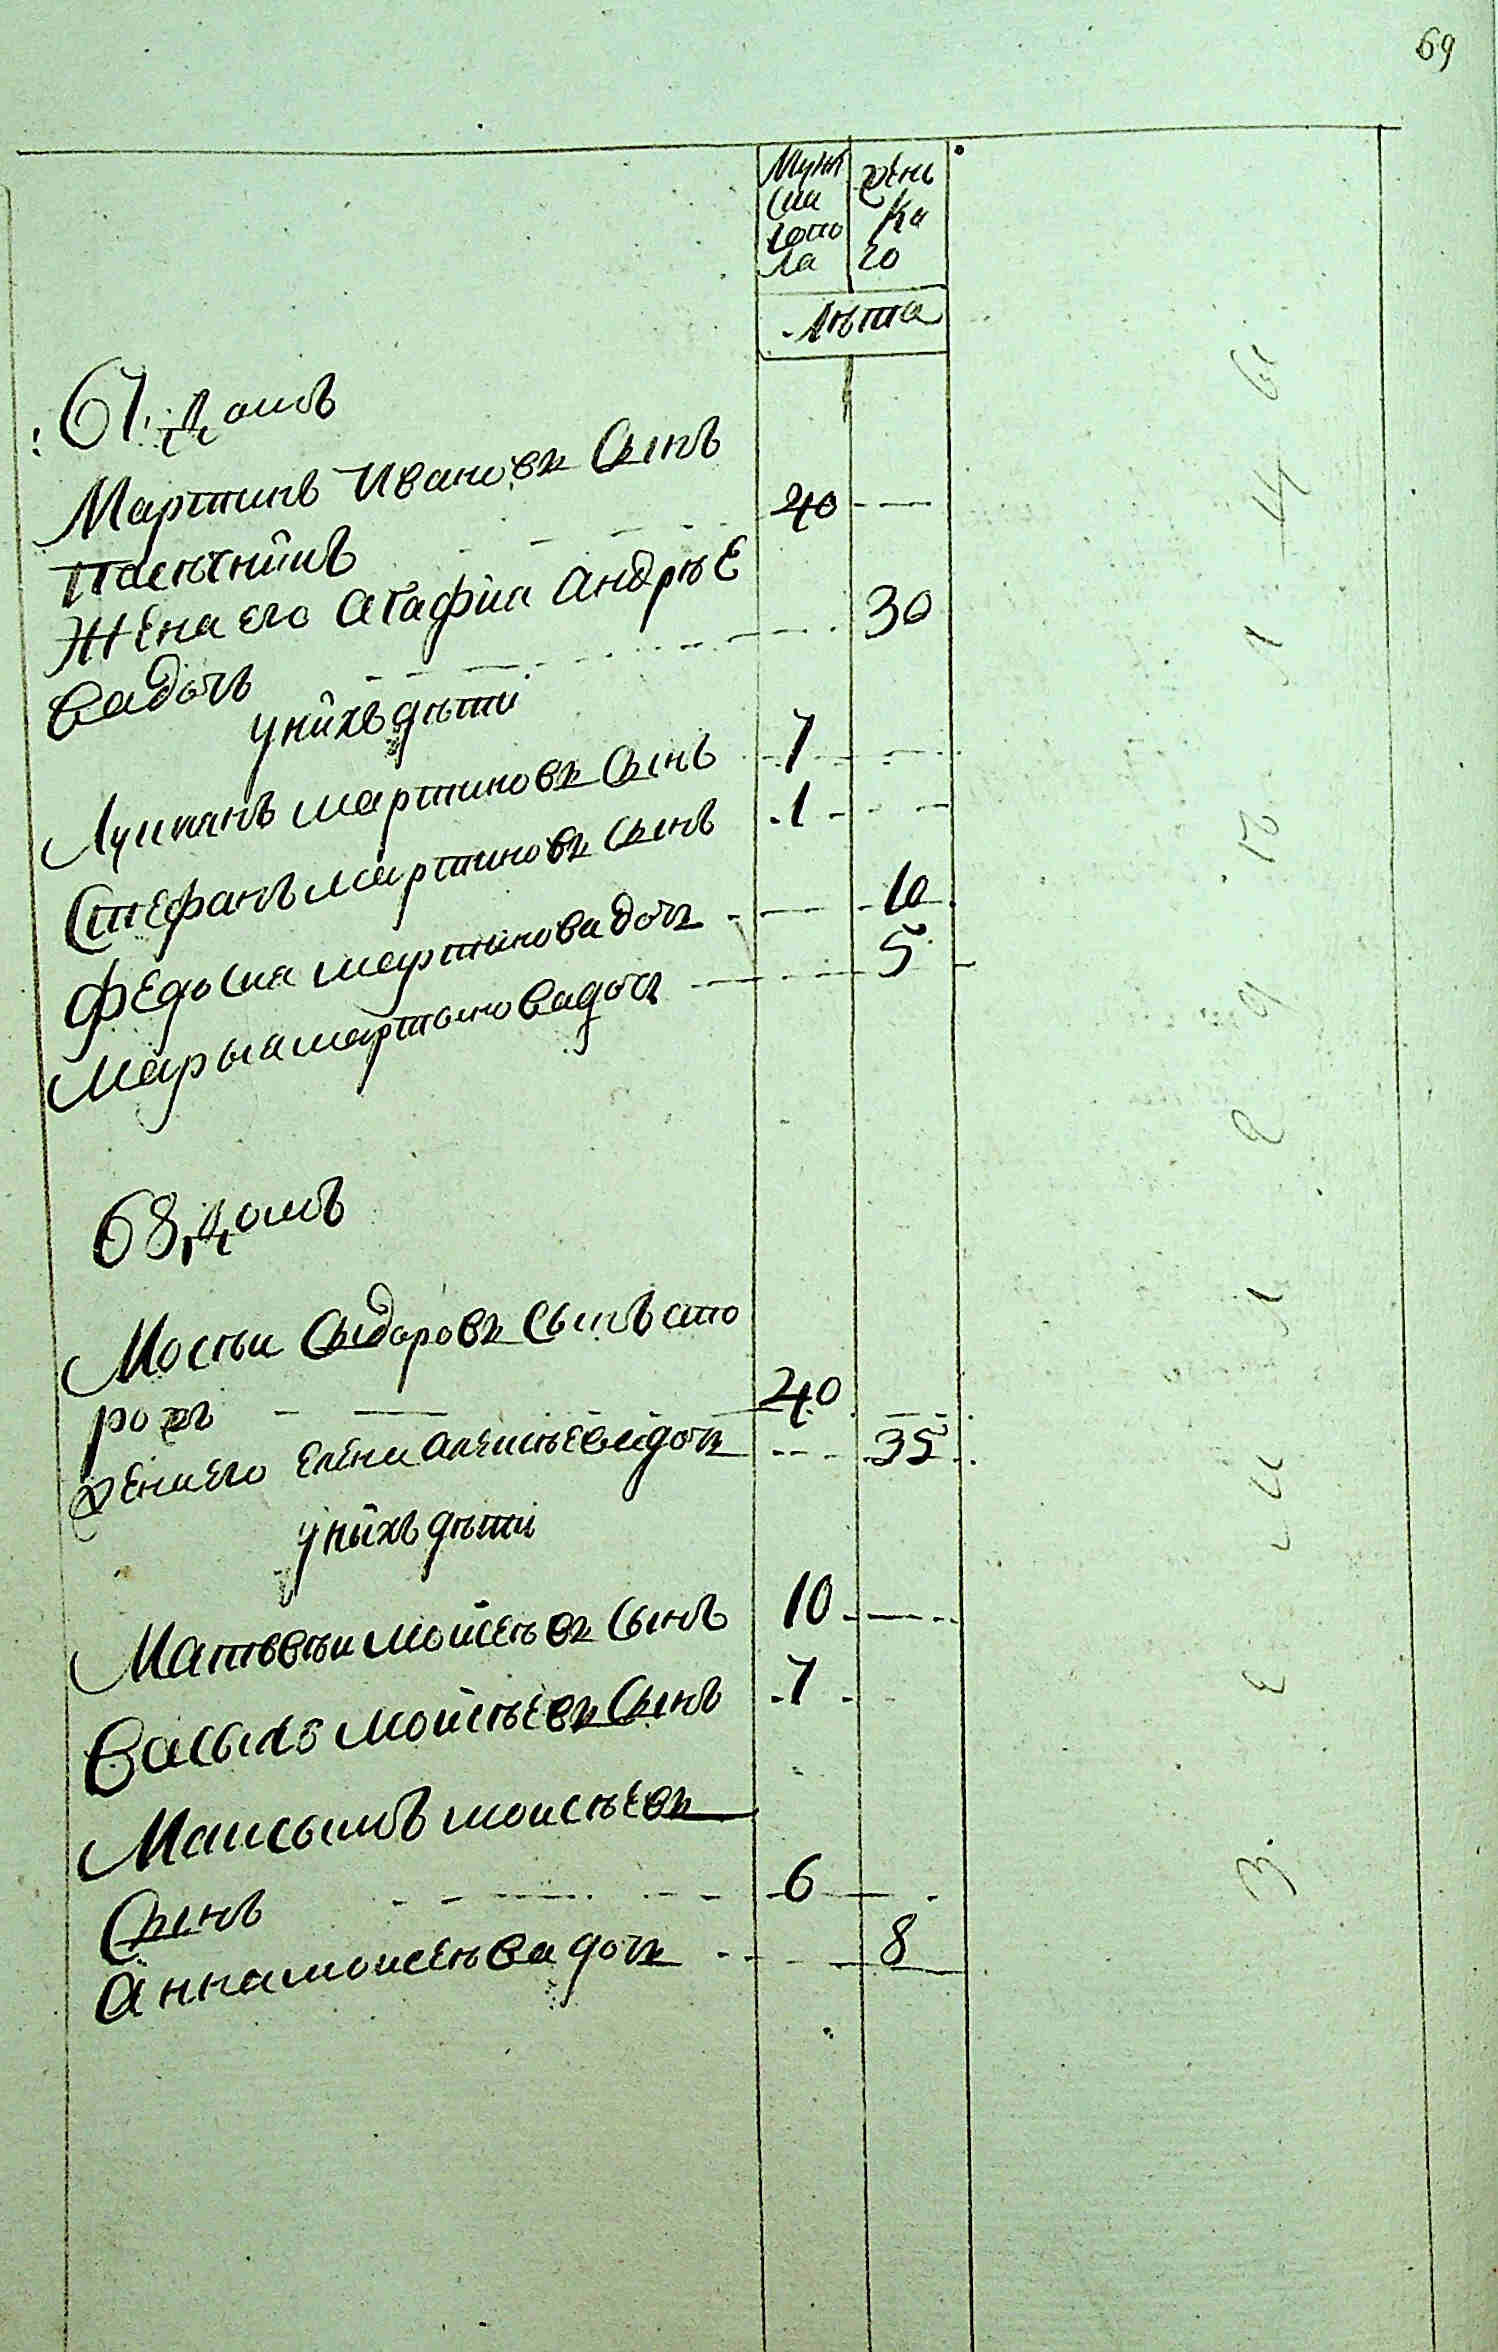 69
Мужс скаго пола
женс ка го
Лѣта
67, домъ
Мартинъ Ивановъ Сынъ
Пасѣчникъ 40
Жена его агафия андрѣе
ва дочь 30
у нихъ дѣти
Лукиянъ мартиновъ Сынъ 7
Стефанъ мартиновъ сынъ 1
Федосия мартинова дочь 10
Марыа мартынова дочь 5
68, домъ
Мосѣи Сидоровъ сынъ сто
рожъ 40
жена его елена алексѣева дочь 35
у нихъ дѣти
Матвѣи моисеѣвъ сынъ 10
Васыль моисѣевъ Сынъ 7
Максымъ моисѣевъ
Сынъ 6
Анна моисеѣва дочь 8